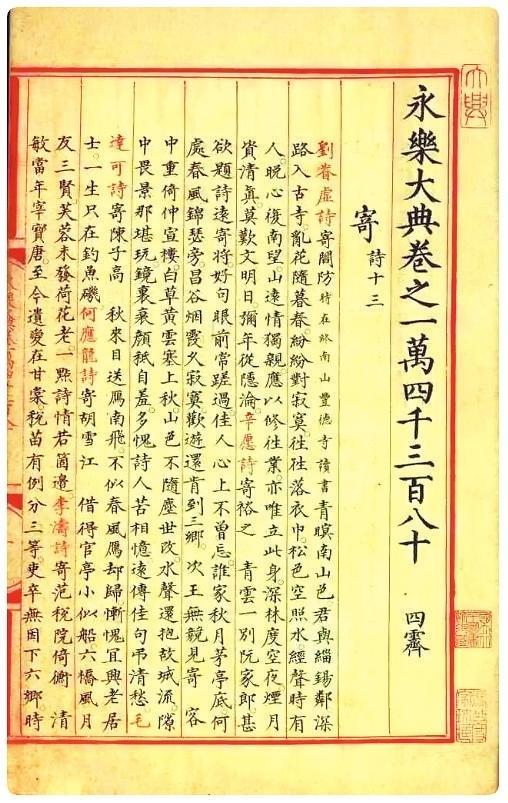 永樂大典卷之一萬四千三百八十 四霽
寄 詩十三
劉眷虛詩寄閻防時在終南山豐德寺讀書青暝南山色君與緇錫鄰深
路入古寺亂花隨暮春紛紛對寂寞往往落衣巾松色空照水經聲時有
人晚心復南望山遠情獨親應以修往業亦唯立此身深林度空夜煙月
資清真莫歎文明日彌年從隱淪辛愿詩寄裕之 青雲一別阮家郎甚
欲題詩遠寄將好句眼前常蹉過佳人心上不曾忘誰家秋月茅亭底何
處春風錦瑟旁昌谷烟霞久寂寞歡遊還肯到三鄉 次王無競見寄 客
中重倚仲宣樓白草黃雲塞上秋山色不隨塵世改水聲還抱故城流隙
中畏景那堪玩鏡裏衰顏秪自羞多愧詩人苦相憶遠傳佳句弔清愁毛
達可詩寄陳子高 秋來目送鴈南飛不似春風鴈却歸慚愧宜興老居
士一生只在釣魚磯何應龍詩寄胡雪江 借得官亭小似船六橋風月
友三賢芙蓉未發荷花老一點詩情若箇邊李濤詩寄范稅院倚衡 清
敏當年宰寶唐至今遺愛在甘棠稅苗有例分三等吏卒無因下六鄉時